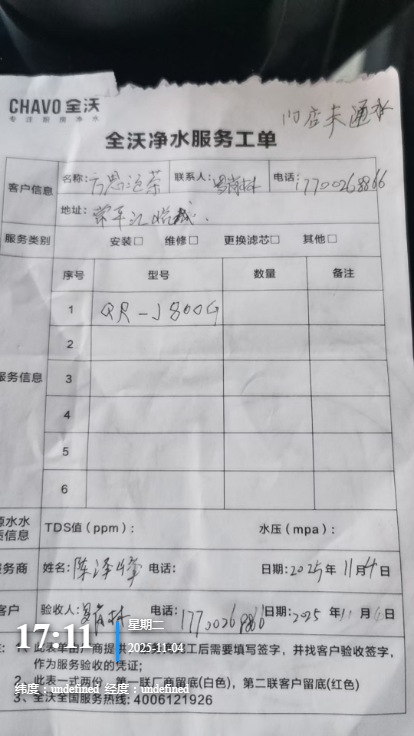 CHAVO 全沃
专注厨房净水
门店未通水
全沃净水服务工单
客户信息
名称: 联系人: 电话: 17700268866
地址:
服务类别 安装□ 维修□ 更换滤芯□ 其他□
服务信息
序号 型号 数量 备注
1 QR-J800G
2
3
4
5
6
源水水
质信息 TDS值（ppm）: 水压（mpa）:
服务商 姓名: 陈泽 电话: 日期: 2025年11月4日
客户 验收人: 电话: 17700268866 日期: 2025年11月 日
工后需要填写签字，并找客户验收签字，
作为服务验收的凭证;
2、此表一式两份，第一联厂商留底(白色)，第二联客户留底(红色)
3、全沃全国服务热线: 4006121926
17:11
星期二
2025-11-04
纬度：undefined 经度：undefined